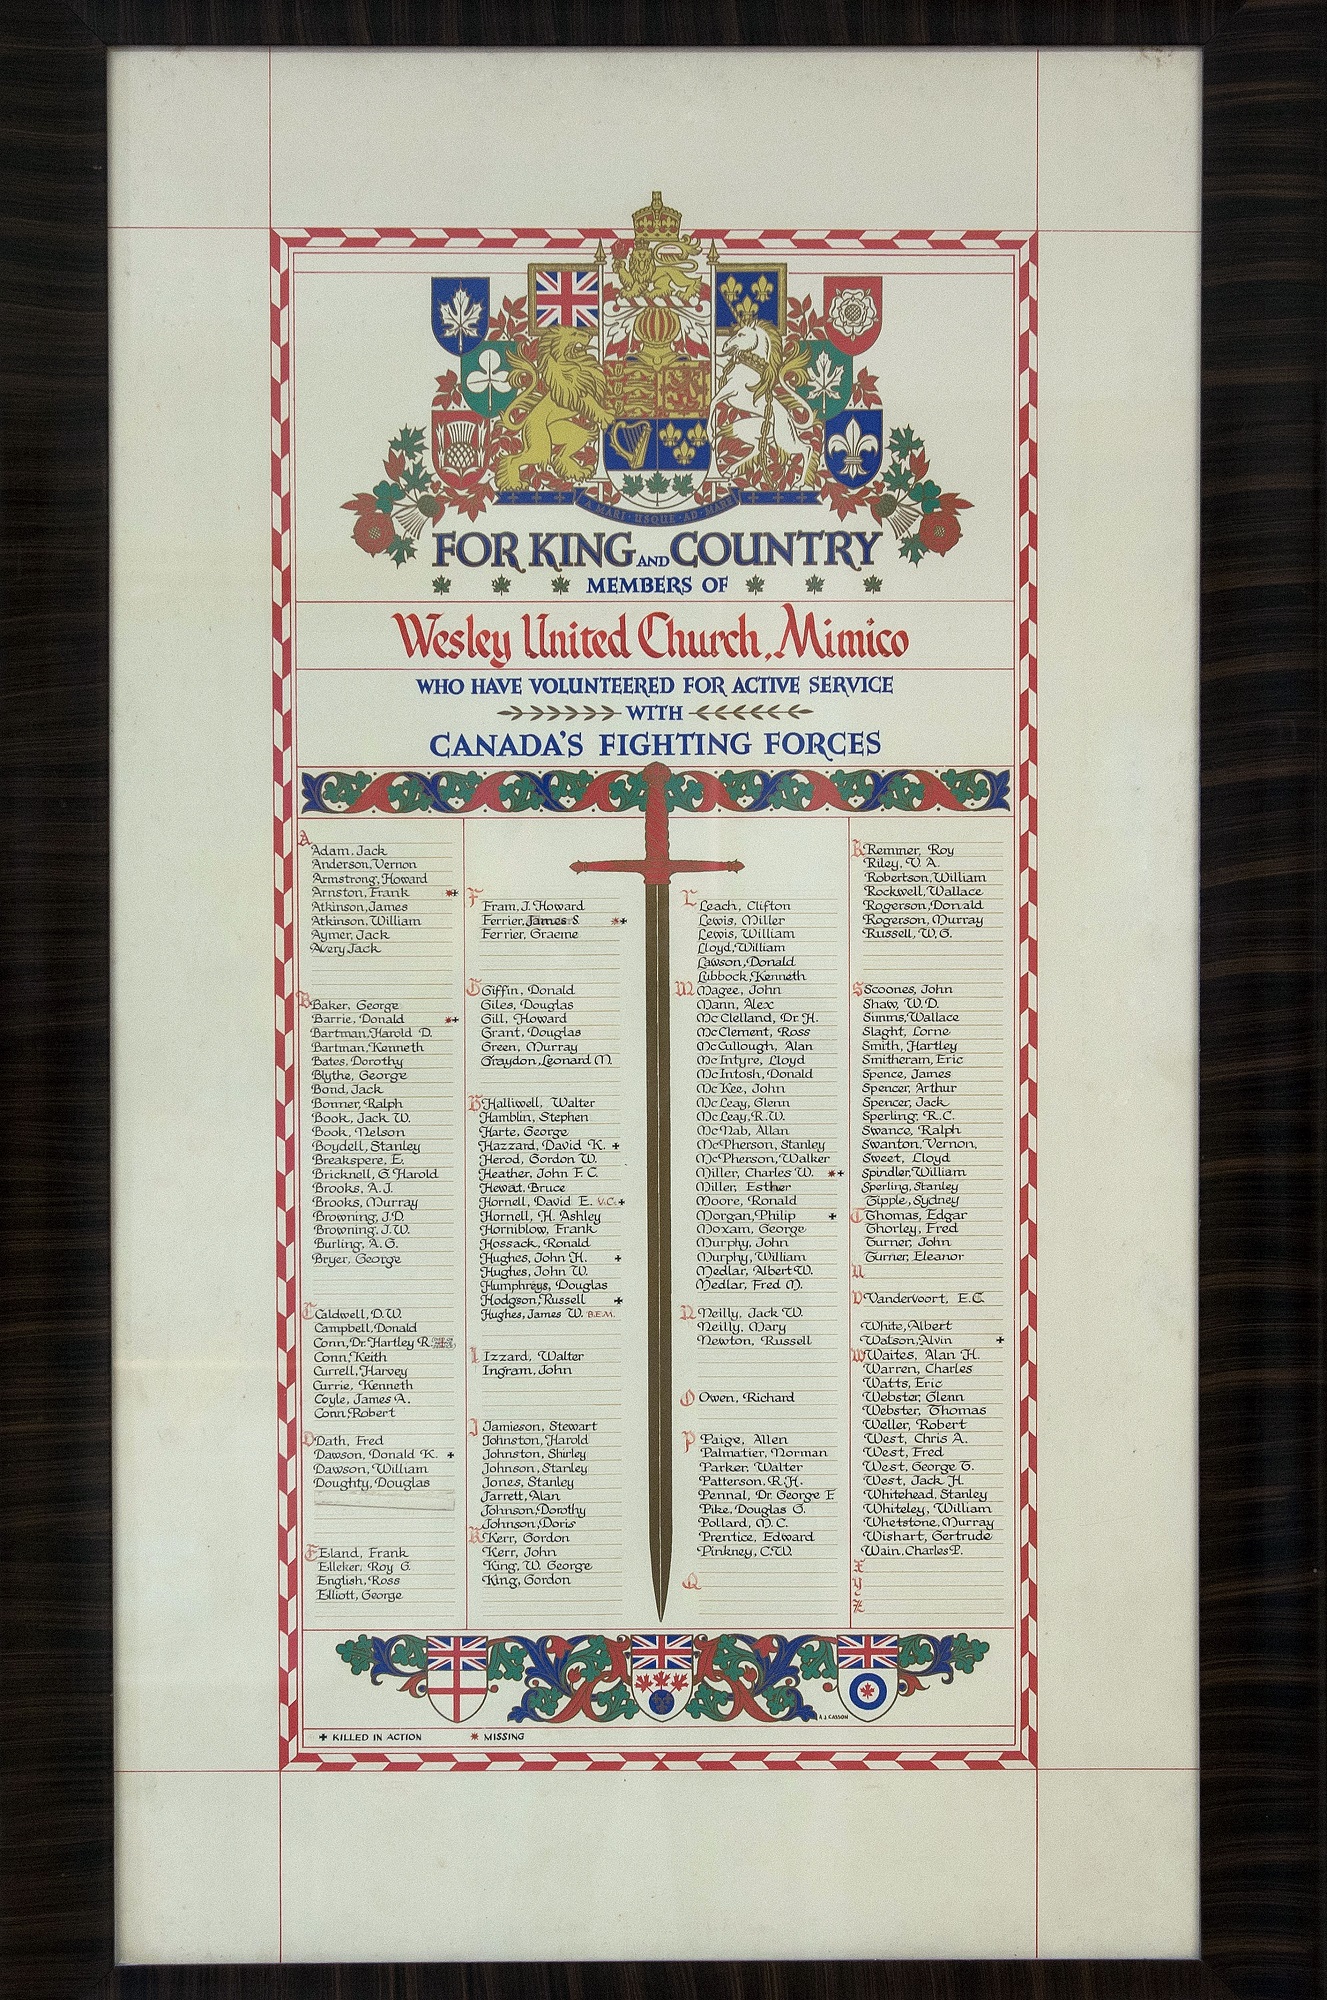 A MARI · USQUE · AD · MARE
FOR KING AND COUNTRY
MEMBERS OF
Wesley United Church, Mimico
WHO HAVE VOLUNTEERED FOR ACTIVE SERVICE
WITH
CANADA'S FIGHTING FORCES
A
Adam, Jack
Anderson, Vernon
Armstrong, Howard
Arnston, Frank ✶+
Atkinson, James
Atkinson, William
Aymer, Jack
Avery Jack
B
Baker, George
Barrie, Donald ✶+
Bartman, Harold D.
Bartman, Kenneth
Bates, Dorothy
Blythe, George
Bond, Jack
Bonner, Ralph
Book, Jack W.
Book, Nelson
Boydell, Stanley
Breakspere, E.
Bricknell, G. Harold
Brooks, A. J.
Brooks, Murray
Browning, J. D.
Browning, J. W.
Burling, A. G.
Bryer, George
C
Caldwell, D. W.
Campbell, Donald
Conn, Dr. Hartley R.
Conn, Keith
Currell, Harvey
Currie, Kenneth
Coyle, James A.
Conn, Robert
D
Dath, Fred
Dawson, Donald K. +
Dawson, William
Doughty, Douglas
E
Eland, Frank
Elleker, Roy G.
English, Ross
Elliott, George
F
Fram, J. Howard
Ferrier, James S. ✶+
Ferrier, Graeme
G
Giffin, Donald
Giles, Douglas
Gill, Howard
Grant, Douglas
Green, Murray
Graydon, Leonard M.
H
Halliwell, Walter
Hamblin, Stephen
Harte, George
Hazzard, David K. +
Herod, Gordon W.
Heather, John F. C.
Hewat, Bruce
Hornell, David E. V.C. +
Hornell, H. Ashley
Horniblow, Frank
Hossack, Ronald
Hughes, John H. +
Hughes, John W.
Humphreys, Douglas
Hodgson, Russell +
Hughes, James W. B.E.M.
I
Izzard, Walter
Ingram, John
J
Jamieson, Stewart
Johnston, Harold
Johnston, Shirley
Johnson, Stanley
Jones, Stanley
Jarrett, Alan
Johnson, Dorothy
Johnson, Doris
K
Kerr, Gordon
Kerr, John
King, W. George
King, Gordon
L
Leach, Clifton
Lewis, Miller
Lewis, William
Lloyd, William
Lawson, Donald
Lubbock, Kenneth
M
Magee, John
Mann, Alex
McClelland, Dr. H.
McClement, Ross
McCullough, Alan
McIntyre, Lloyd
McIntosh, Donald
McKee, John
McLeay, Glenn
McLeay, R. W.
McNab, Allan
McPherson, Stanley
McPherson, Walker
Miller, Charles W. ✶+
Miller, Esther
Moore, Ronald
Morgan, Philip +
Moxam, George
Murphy, John
Murphy, William
Medlar, Albert W.
Medlar, Fred M.
N
Neilly, Jack W.
Neilly, Mary
Newton, Russell
O
Owen, Richard
P
Paige, Allen
Palmatier, Norman
Parker, Walter
Patterson, R. H.
Pennal, Dr. George E
Pike, Douglas G.
Pollard, M. C.
Prentice, Edward
Pinkney, C. W.
Q
R
Remner, Roy
Riley, V. A.
Robertson, William
Rockwell, Wallace
Rogerson, Donald
Rogerson, Murray
Russell, W. G.
S
Scoones, John
Shaw, W. D.
Simms, Wallace
Slaght, Lorne
Smith, Hartley
Smitheram, Eric
Spence, James
Spencer, Arthur
Spencer, Jack
Sperling, R. C.
Swance, Ralph
Swanton, Vernon,
Sweet, Lloyd
Spindler, William
Sperling, Stanley
Tipple, Sydney
T
Thomas, Edgar
Thorley, Fred
Turner, John
Turner, Eleanor
U
V
Vandervoort, E. C.
White, Albert
Watson, Alvin +
W
Waites, Alan H.
Warren, Charles
Watts, Eric
Webster, Glenn
Webster, Thomas
Weller, Robert
West, Chris A.
West, Fred
West, George T.
West, Jack H.
Whitehead, Stanley
Whiteley, William
Whetstone, Murray
Wishart, Gertrude
Wain, Charles P.
X
Y
Z
A J CASSON
+ KILLED IN ACTION ✶ MISSING